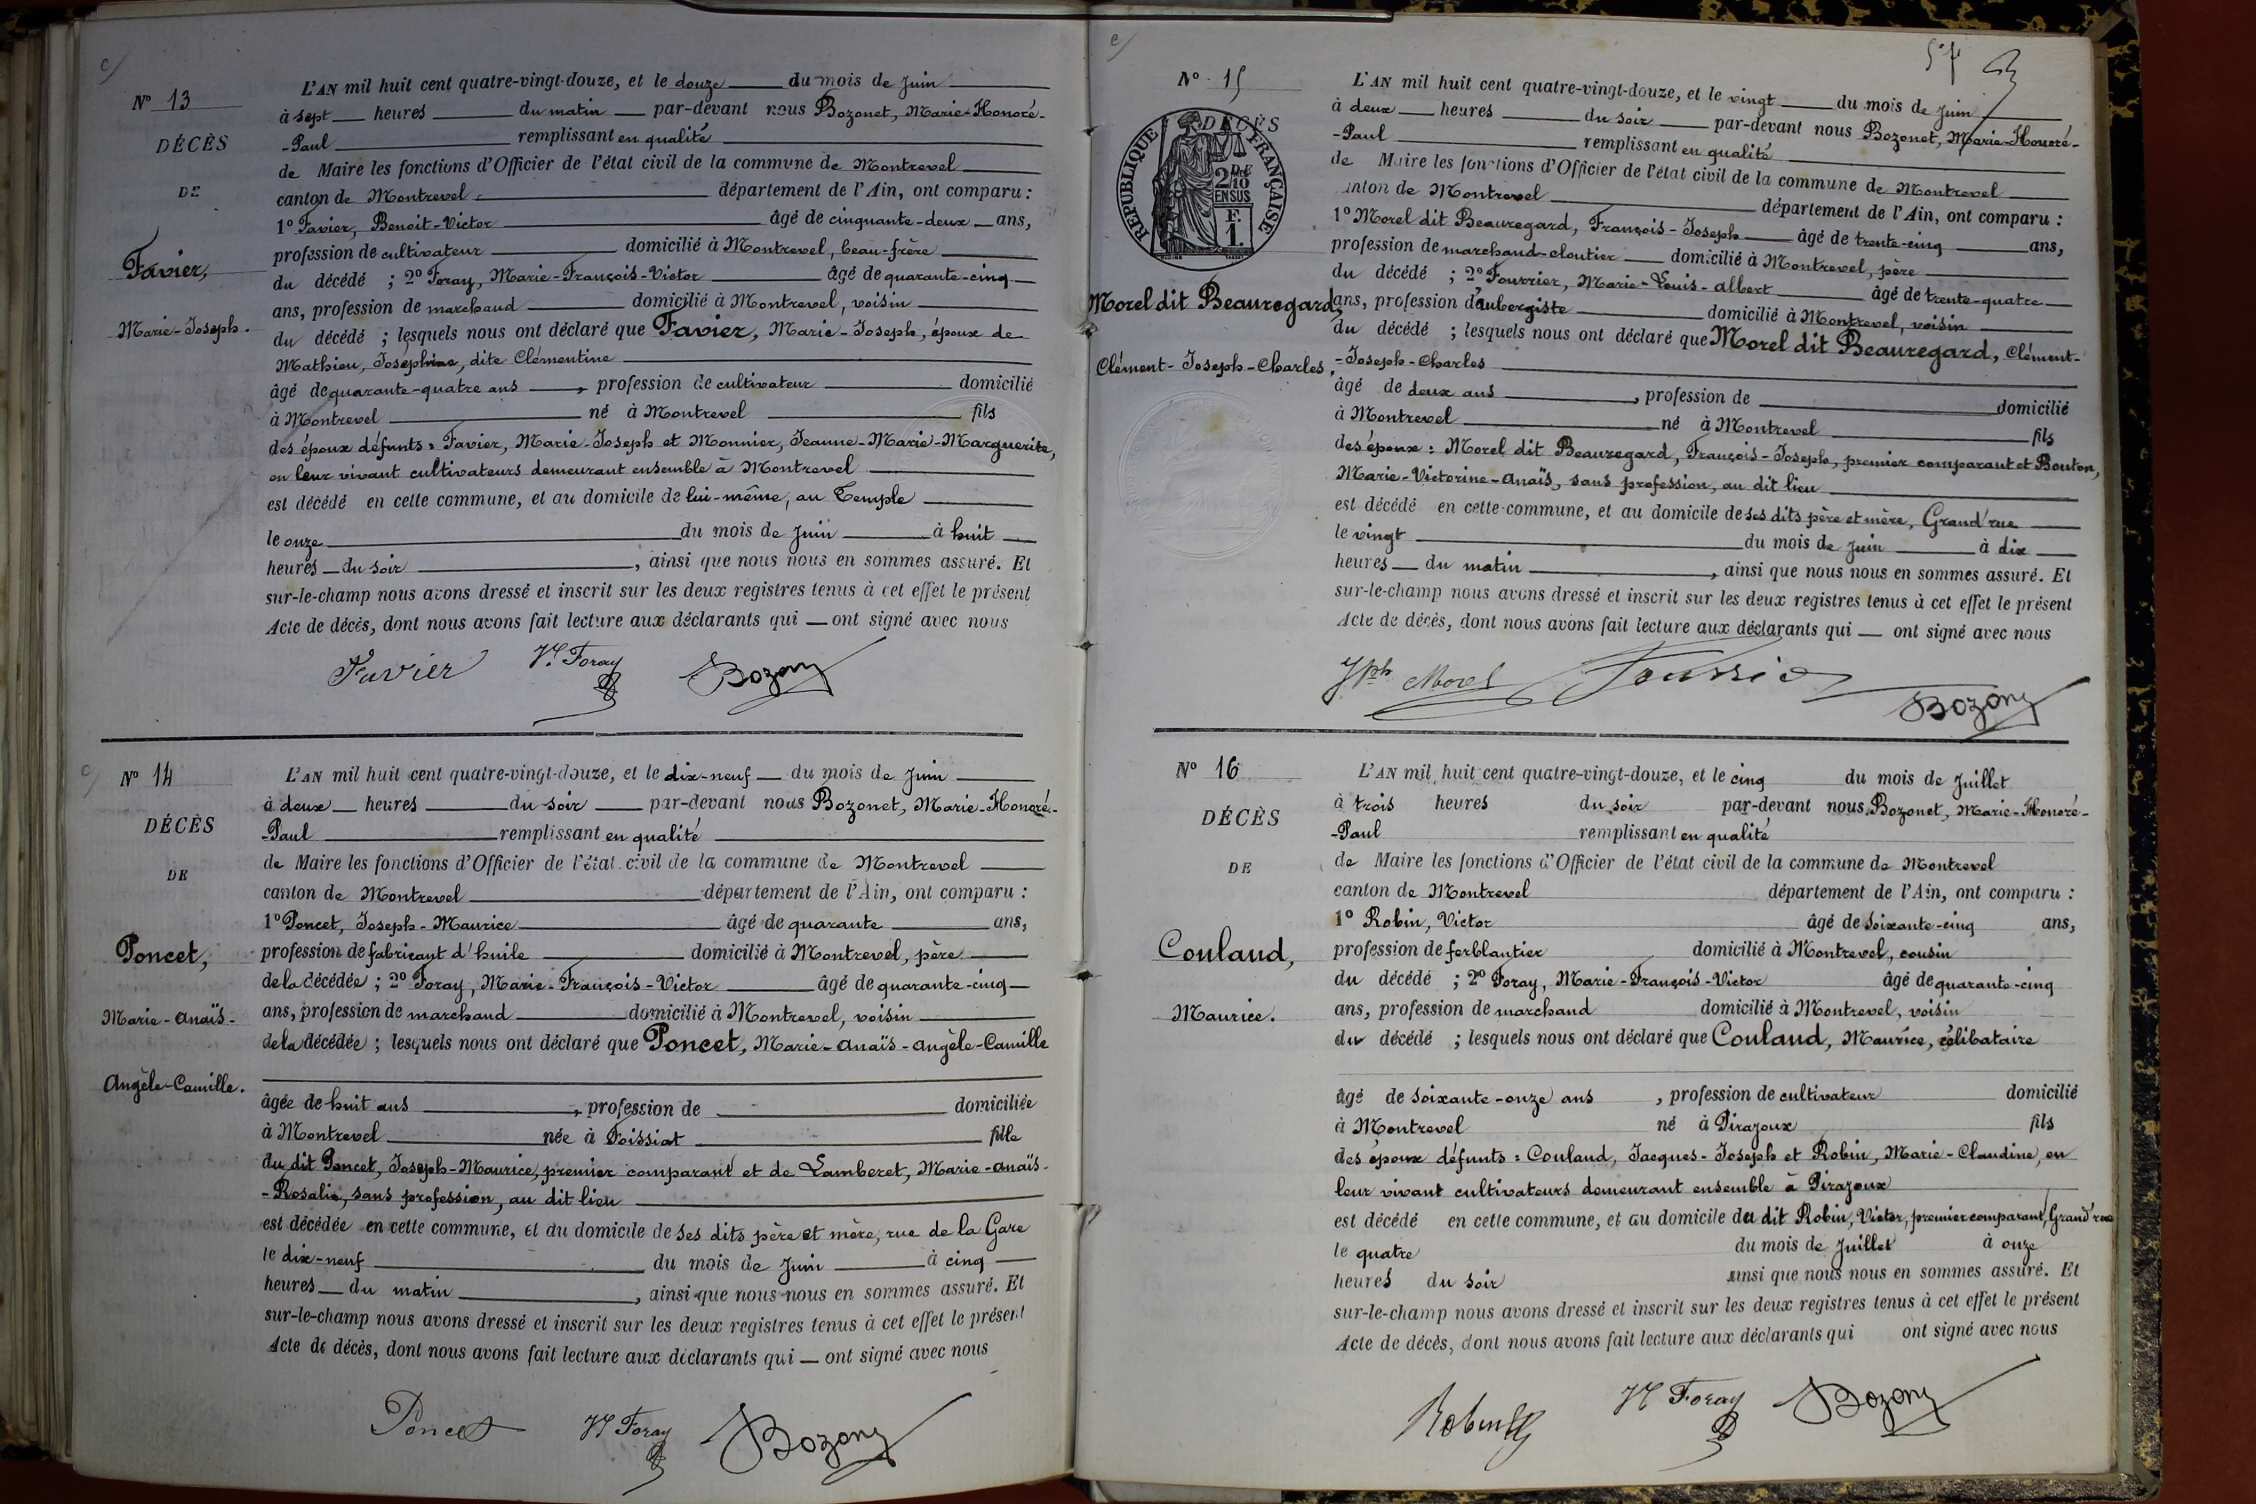 c/
N° 13
DÉCÈS
DE
Favier,
Marie-Joseph.
L'AN mil huit cent quatre-vingt-douze, et le douze du mois de Juin
à sept heures du matin par-devant nous Bozonet, Marie-Honoré-
-Paul remplissant en qualité
de Maire les fonctions d'Officier de l'état civil de la commune de Montrevel
canton de Montrevel département de l'Ain, ont comparu :
1° Favier, Benoit-Victor âgé de cinquante-deux ans,
profession de cultivateur domicilié à Montrevel, beau-frère
du décédé ; 2° Foray, Marie-François-Victor âgé de quarante-cinq
ans, profession de marchand domicilié à Montrevel, voisin
du décédé ; lesquels nous ont déclaré que Favier, Marie-Joseph, époux de
Mathieu, Joséphine, dite Clémentine
âgé de quarante-quatre ans , profession de cultivateur domicilié
à Montrevel né à Montrevel fils
des époux défunts : Favier, Marie-Joseph et Monnier, Jeanne-Marie-Marguerite,
en leur vivant cultivateurs demeurant ensemble à Montrevel
est décédé en cette commune, et au domicile de lui-même, au Temple
le onze du mois de Juin à huit
heures du soir , ainsi que nous nous en sommes assuré. Et
sur-le-champ nous avons dressé et inscrit sur les deux registres tenus à cet effet le présent
Acte de décès, dont nous avons fait lecture aux déclarants qui ont signé avec nous
Favier Vt Foray Bozony
c/
N° 14
DÉCÈS
DE
Poncet,
Marie-Anaïs-
Angèle-Camille.
L'AN mil huit cent quatre-vingt-douze, et le dix-neuf du mois de Juin
à deux heures du soir par-devant nous Bozonet, Marie-Honoré-
-Paul remplissant en qualité
de Maire les fonctions d'Officier de l'état civil de la commune de Montrevel
canton de Montrevel département de l'Ain, ont comparu :
1° Poncet, Joseph-Maurice âgé de quarante ans,
profession de fabricant d'huile domicilié à Montrevel, père
de la décédée ; 2° Foray, Marie-François-Victor âgé de quarante-cinq
ans, profession de marchand domicilié à Montrevel, voisin
de la décédée ; lesquels nous ont déclaré que Poncet, Marie-Anaïs-Angèle-Camille
âgée de huit ans , profession de domiciliée
à Montrevel née à Foissiat fille
du dit Poncet, Joseph-Maurice, premier comparant et de Lamberet, Marie-Anaïs-
-Rosalie, sans profession, au dit lieu
est décédée en cette commune, et au domicile de ses dits père et mère, rue de la Gare
le dix-neuf du mois de Juin à cinq
heures du matin , ainsi que nous nous en sommes assuré. Et
sur-le-champ nous avons dressé et inscrit sur les deux registres tenus à cet effet le présent
Acte de décès, dont nous avons fait lecture aux déclarants qui ont signé avec nous
Poncet Vt Foray Bozony
c/
N° 15
DÉCÈS
DE
RÉPUBLIQUE FRANÇAISE
2/10
EN SUS
F.
1.
Morel dit Beauregard,
Clément-Joseph-Charles.
L'AN mil huit cent quatre-vingt-douze, et le vingt du mois de Juin
à deux heures du soir par-devant nous Bozonet, Marie-Honoré-
-Paul remplissant en qualité
de Maire les fonctions d'Officier de l'état civil de la commune de Montrevel
canton de Montrevel département de l'Ain, ont comparu :
1° Morel dit Beauregard, François-Joseph âgé de trente-cinq ans,
profession de marchand-cloutier domicilié à Montrevel, père
du décédé ; 2° Fourrier, Marie-Louis-Albert âgé de trente-quatre
ans, profession d'aubergiste domicilié à Montrevel, voisin
du décédé ; lesquels nous ont déclaré que Morel dit Beauregard, Clément-
-Joseph-Charles
âgé de deux ans , profession de domicilié
à Montrevel né à Montrevel fils
des époux : Morel dit Beauregard, François-Joseph, premier comparant et Bouton,
Marie-Victorine-Anaïs, sans profession, au dit lieu
est décédé en cette commune, et au domicile de ses dits père et mère, Grand'rue
le vingt du mois de Juin à dix
heures du matin , ainsi que nous nous en sommes assuré. Et
sur-le-champ nous avons dressé et inscrit sur les deux registres tenus à cet effet le présent
Acte de décès, dont nous avons fait lecture aux déclarants qui ont signé avec nous
Jph Morel Fourrier Bozony
N° 16
DÉCÈS
DE
Couland,
Maurice.
L'AN mil huit cent quatre-vingt-douze, et le cinq du mois de Juillet
à trois heures du soir par-devant nous Bozonet, Marie-Honoré-
-Paul remplissant en qualité
de Maire les fonctions d'Officier de l'état civil de la commune de Montrevel
canton de Montrevel département de l'Ain, ont comparu :
1° Robin, Victor âgé de soixante-cinq ans,
profession de ferblantier domicilié à Montrevel, cousin
du décédé ; 2° Foray, Marie-François-Victor âgé de quarante-cinq
ans, profession de marchand domicilié à Montrevel, voisin
du décédé ; lesquels nous ont déclaré que Couland, Maurice, célibataire
âgé de soixante-onze ans , profession de cultivateur domicilié
à Montrevel né à Pirajoux fils
des époux défunts : Couland, Jacques-Joseph et Robin, Marie-Claudine, en
leur vivant cultivateurs demeurant ensemble à Pirajoux
est décédé en cette commune, et au domicile du dit Robin, Victor, premier comparant, Grand'rue
le quatre du mois de Juillet à onze
heures du soir ainsi que nous nous en sommes assuré. Et
sur-le-champ nous avons dressé et inscrit sur les deux registres tenus à cet effet le présent
Acte de décès, dont nous avons fait lecture aux déclarants qui ont signé avec nous
Robin Vt Foray Bozony